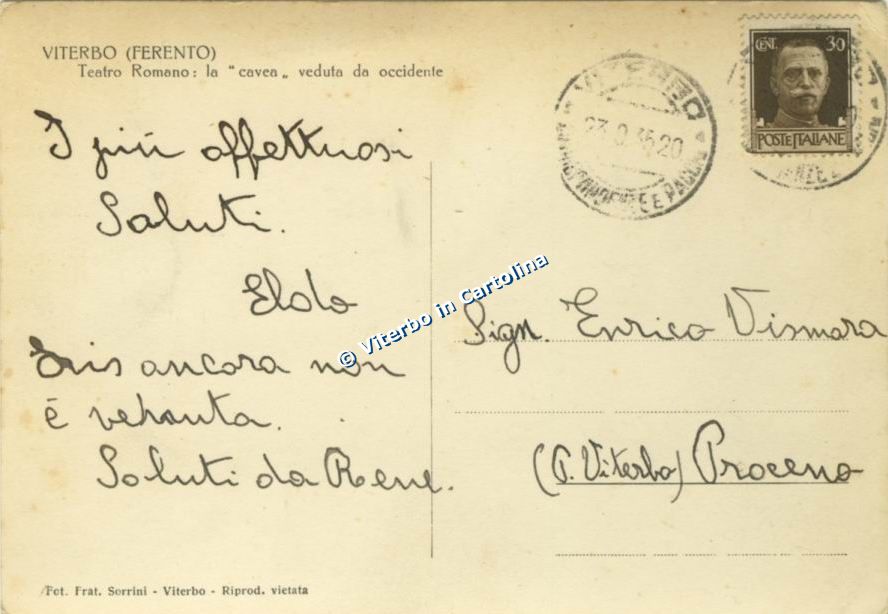 VITERBO (FERENTO)
Teatro Romano: la "cavea„ veduta da occidente
CENT. 30
POSTE ITALIANE
VITERBO
I più affettuosi
Saluti.
Eldo
Iris ancora non
è venuta.
Saluti da Rene.
© Viterbo in Cartolina
Sign. Enrico Vismara
(P. Viterbo) Proceno
Fot. Frat. Sorrini - Viterbo - Riprod. vietata